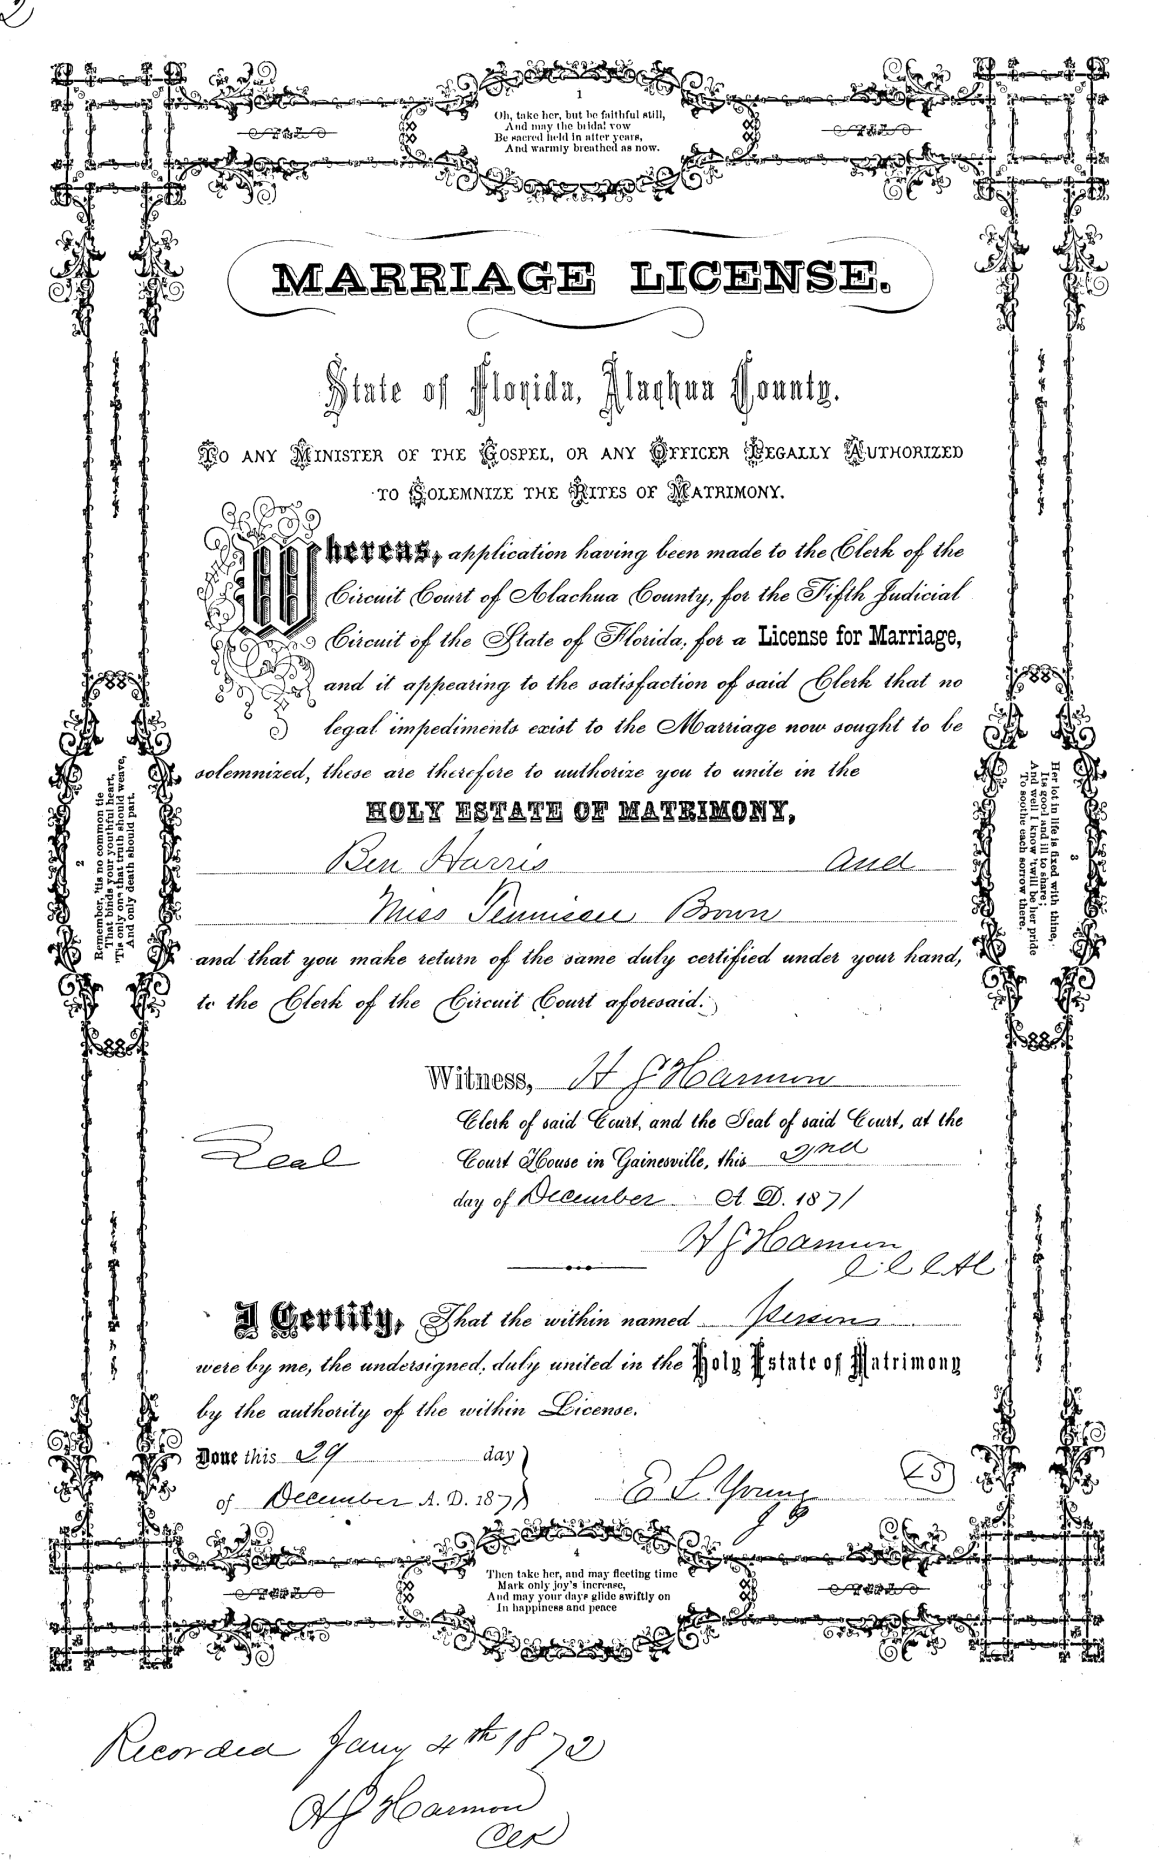 2
1
Oh, take her, but be faithful still,
And may the bridal vow
Be sacred held in after years,
And warmly breathed as now.
MARRIAGE LICENSE.
State of Florida, Alachua County.
TO ANY MINISTER OF THE GOSPEL, OR ANY OFFICER LEGALLY AUTHORIZED
TO SOLEMNIZE THE RITES OF MATRIMONY.
Whereas, application having been made to the Clerk of the
Circuit Court of Alachua County, for the Fifth Judicial
Circuit of the State of Florida, for a License for Marriage,
and it appearing to the satisfaction of said Clerk that no
legal impediments exist to the Marriage now sought to be
solemnized, these are therefore to authorize you to unite in the
HOLY ESTATE OF MATRIMONY,
Ben Harris and
Miss Tennissee Brown
and that you make return of the same duly certified under your hand,
to the Clerk of the Circuit Court aforesaid.
2
Remember, 'tis no common tie
That binds your youthful heart,
'Tis only one that truth should weave,
And only death should part.
3
Her lot in life is fixed with thine,
Its good and ill to share;
And well I know 'twill be her pride
To soothe each sorrow there.
Witness, H J Harmon
Clerk of said Court, and the Seal of said Court, at the
Seal
Court House in Gainesville, this 2nd
day of December A. D. 1871
H J Harmon
C C C A C
I Certify, That the within named persons
were by me, the undersigned, duly united in the Holy Estate of Matrimony
by the authority of the within License.
Done this 29 day
of December A. D. 1871
E L Young LS
J P
4
Then take her, and may fleeting time
Mark only joy's increase,
And may your days glide swiftly on
In happiness and peace
Recorded Jany 4th 1872
H J Harmon
Clk